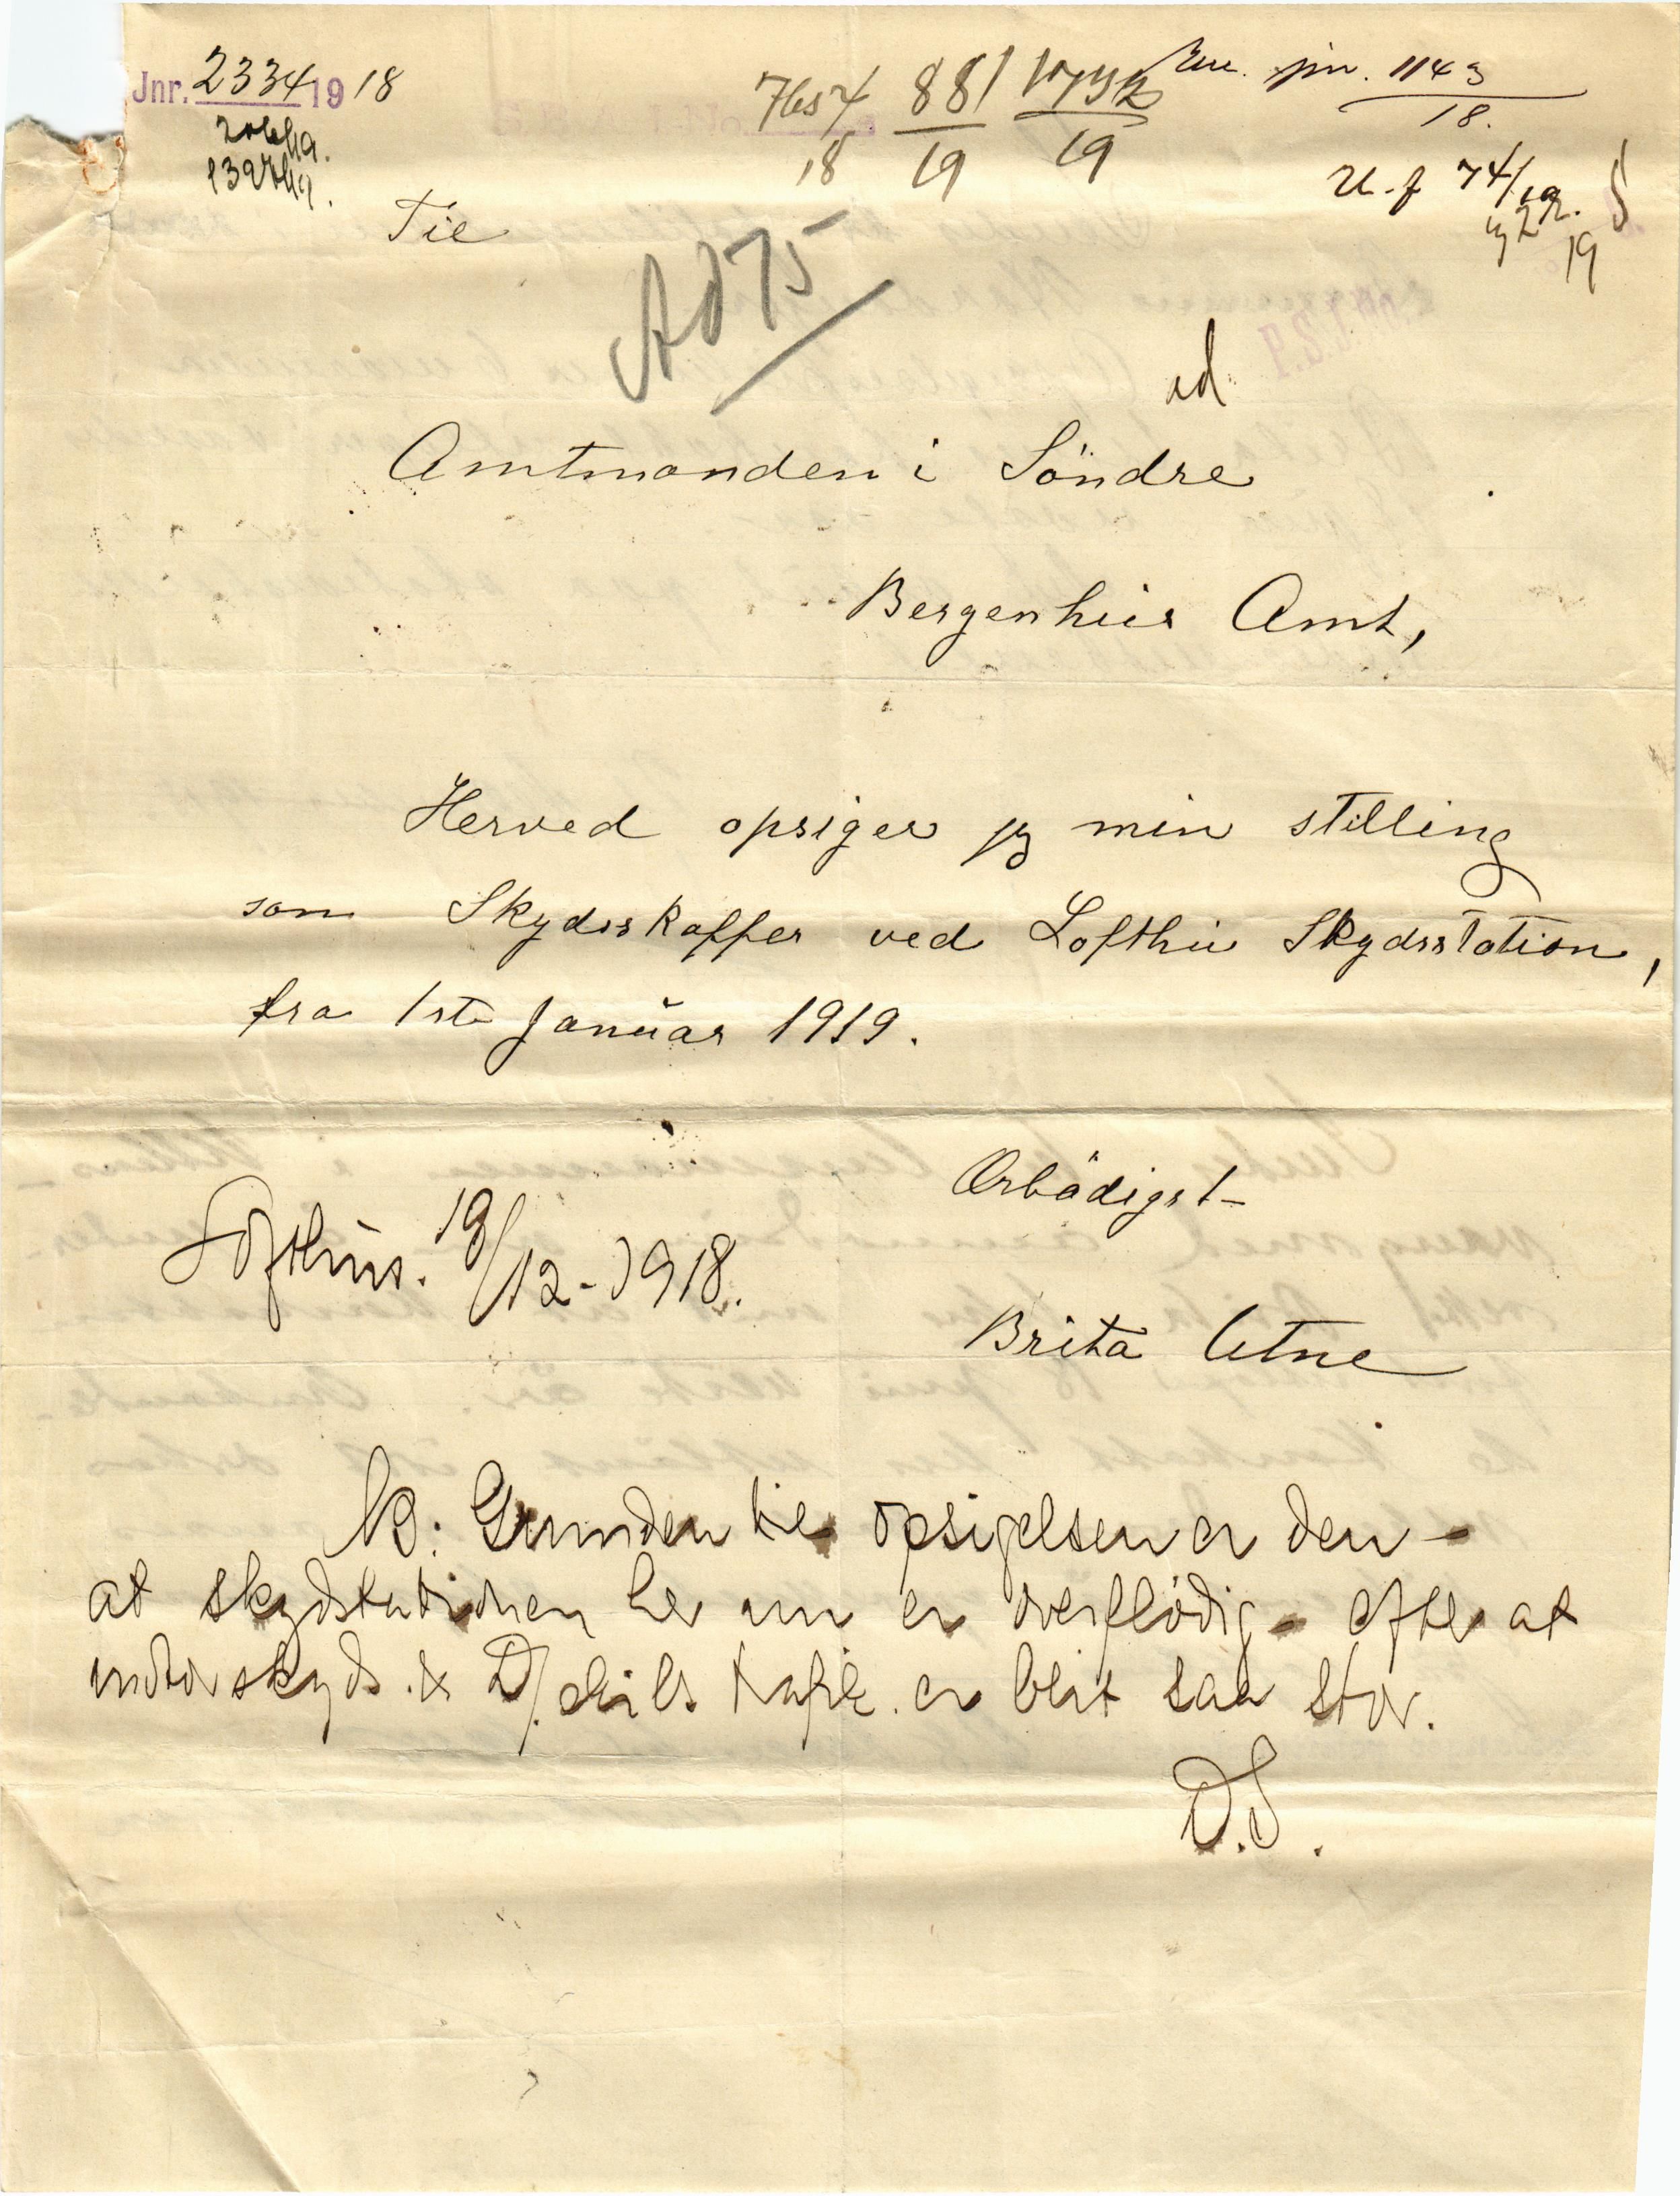 Jnr. 2334 1918
881
19
19
18
jnr. 1143
18.
19
Til
Ad 75
Amtmanden i Söndre
Bergenhus Amt,
Herved opsiger jeg min stilling
som Skydsskaffer ved Lofthus Skydsstation,
fra 1ste Januar 1919.
Ærbödigst
Lofthus. 19/12-1918.
Brita Utne
NB: Grunden til opsigelsen er den -
at skydstationen her nu er overflödig - efter at
motorskyds & D/skibs trafik er blit saa stor.
D.S.